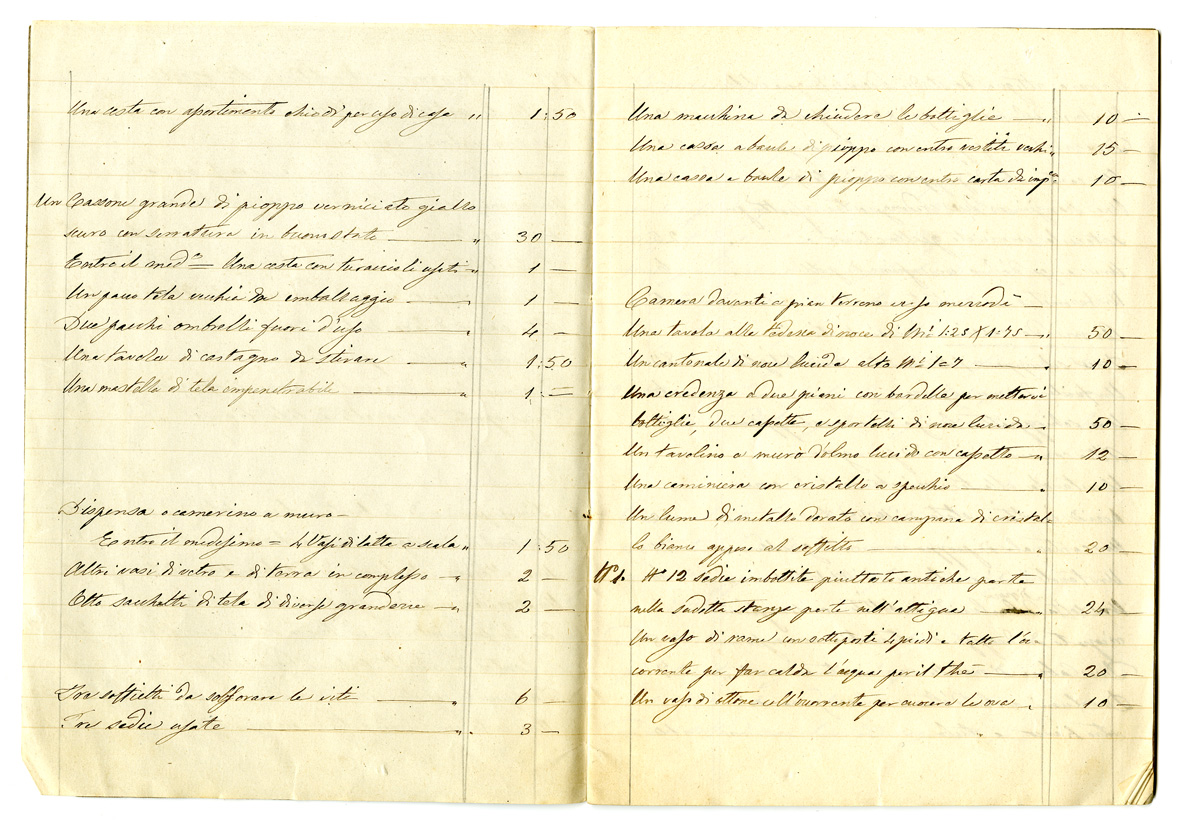 Una cesta con apartimento chiodi per uso di casa „ 1:50
Un Cassone grande di pioppo verniciato giallo
scuro con serratura in buon stato — „ 30 —
Entro il med.mo = Una cesta con turaccioli usati „ 1 —
Un pacco tela vecchia da imballaggio — „ 1 —
Due pacchi ombrelli fuori d'uso — „ 4 —
Una tavola di castagno da stirare — „ 1:50
Una mastella di tela impenetrabile — „ 1:=
Dispensa o camerino a muro —
Entro il medesimo = 4 Vasi di latta a scala „ 1:50
Altri vasi di vetro e di terra in complesso — „ 2 —
Otto sacchetti di tela di diverse grandezze — „ 2 —
Tre soffietti da solforare le viti — „ 6 —
Tre sedie usate — „ 3 —
Una macchina da chiudere le bottiglie — „ 10 —
Una cassa a baule di pioppo con entro vestiti vecchi „ 15 —
Una cassa a baule di pioppo con entro carta da „ 10 —
Camera davanti a pian terreno verso mezzodì —
Una tavola alla tedesca di noce di Mi 1:25 X 1:75 — „ 50 —
Un cantonale di noce lucida alto Mi 1=7 — „ 10 —
Una credenza a due piani con bardelle per mettervi
bottiglie, due capette, e sportelli di noce lucida — „ 50 —
Un tavolino a muro d'olmo lucido con cassetto — „ 12 —
Una caminiera con cristallo a specchio — „ 10 —
Un lume di metallo dorato con campana di cristal-
lo bianco appeso al soffitto — „ 20 —
No 12 sedie imbottite piuttosto antiche parte
nella sudetta stanza parte nell'attigua — 24 —
Un vaso di rame con sottoposti 4 piedi e tutto l'oc-
corrente per far calda l'acqua per il thè — „ 20 —
Un vaso di ottone coll'occorrente per cuocere le ova „ 10 —